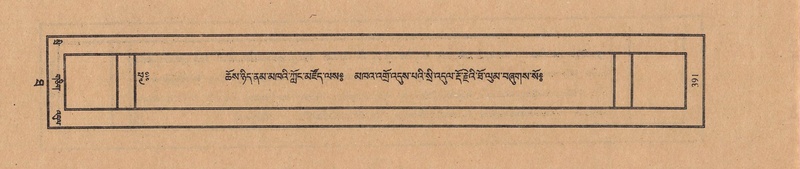 ཆོས་ཉིད་ནམ་མཁའི་ཀློང་མཛོད་ལས༔ མཁའ་འགྲོ་འདུས་པའི་སྲི་འདུལ་རྡོ་རྗེའི་ཐོ་ལུམ་བཞུགས་སོ༔
391